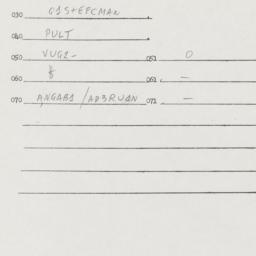 030 G1S+EFCMAN
040 PULT
050 VUG1- 051 0
060 $ 061 -
070 ANGAB1/AD3RUAN 071 -